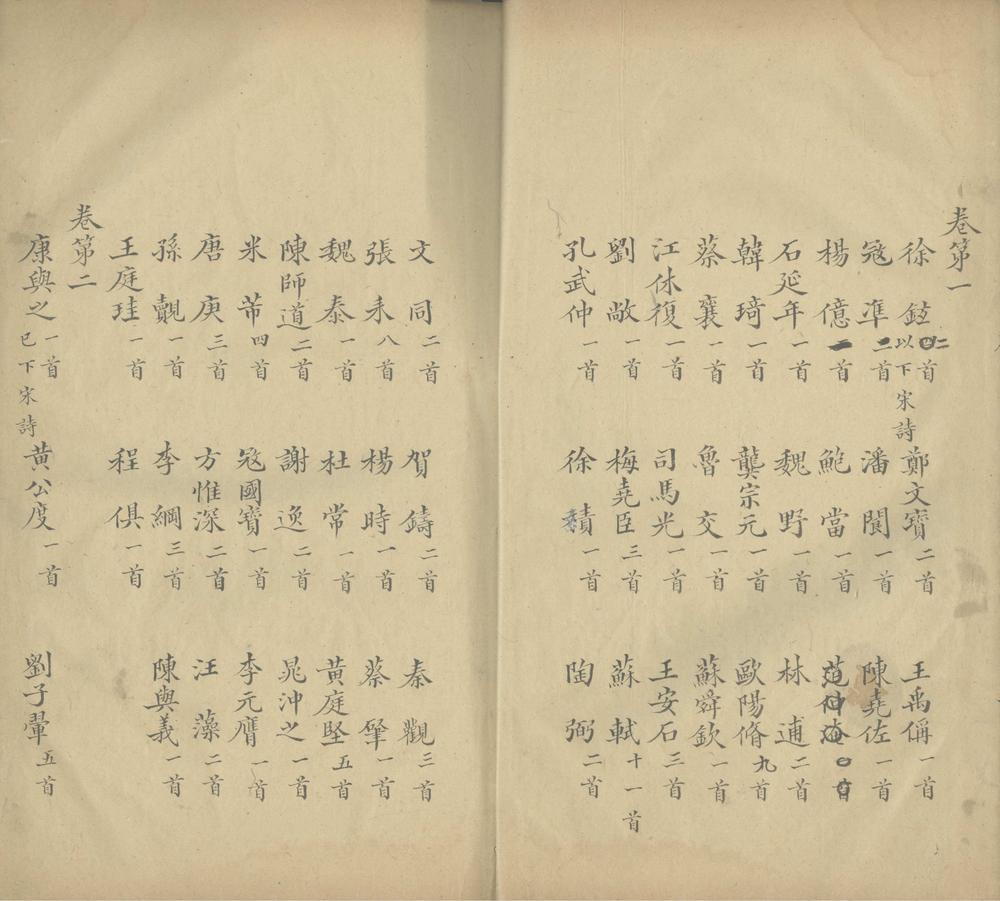 卷第一
徐鉉二首以下宋詩 鄭文寶二首 王禹偁一首
寇準二首 潘閬一首 陳堯佐一首
楊億一首 鮑當一首
石延年一首 魏野一首 林逋二首
韓琦一首 龔宗元一首 歐陽脩九首
蔡襄一首 魯交一首 蘇舜欽一首
江休復一首 司馬光一首 王安石三首
劉敞一首 梅堯臣三首 蘇軾十一首
孔武仲一首 徐積一首 陶弼二首
文同二首 賀鑄二首 秦觀三首
張耒八首 楊時一首 蔡肇一首
魏泰一首 杜常一首 黃庭堅五首
陳師道二首 謝逸二首 晁沖之一首
米芾四首 寇國寶一首 李元膺一首
唐庚三首 方惟深二首 汪藻二首
孫覿一首 李綱三首 陳與義一首
王庭珪一首 程俱一首
卷第二
康與之一首已下宋詩 黃公度一首 劉子翬五首